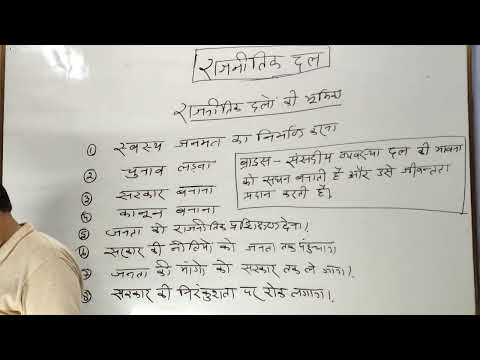 राजनीतिक दल
राजनीतिक दलों की भूमिका
① स्वस्थ जनमत का निर्माण करना
② चुनाव लड़ना
③ सरकार बनाना
④ कानून बनाना
⑤ जनता को राजनीतिक प्रशिक्षण देना।
⑥ सरकार की नीतियों को जनता तक पंहुचाना।
⑦ जनता की मांगो को सरकार तक ले जाना।
⑧ सरकार की निरंकुशता पर रोक लगाना।
ब्राइस - संसदीय व्यवस्था दल की भावना
को सघन बनाती है और उसे जीवन्तता
प्रदान करती है।